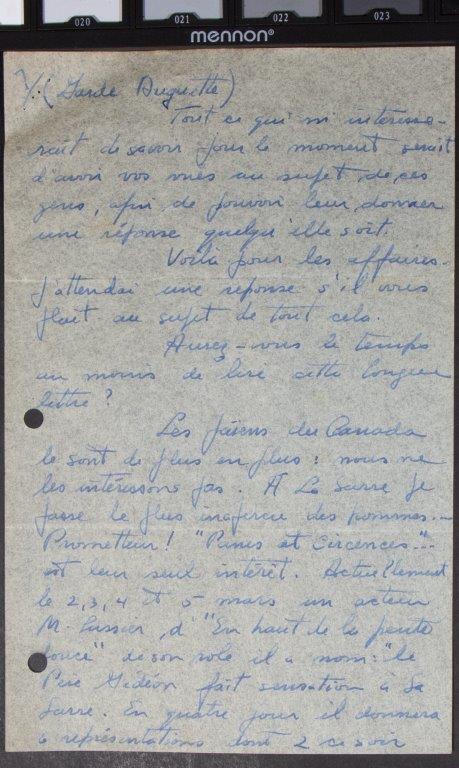 020 021 022 023
mennon®
(Garde Duquette)
Tout ce qui m'intéresse-
rait de savoir pour le moment serait
d'avoir vos vues au sujet de ces
gens, afin de pouvoir leur donner
une réponse quelqu'elle soit.
Voilà pour les affaires.
J'attendai une réponse s'il vous
plait au sujet de tout cela.
Aurez-vous le temps
au moins de lire cette longue
lettre?
Les païens du Canada
le sont de plus en plus: nous ne
les intéressons pas. À La Sarre je
passe le plus inaperçu des hommes...
Prometteur! "Panes et Circences"..
est leur seul intérêt. Actuellement
le 2, 3, 4 et 5 mars un acteur
M. Lussier, d'"En haut de la pente
douce" de son role il a nom: "le
Père Gédéon fait sensation à La
Sarre. En quatre jour il donnera
6 représentations dont 2 ce soir